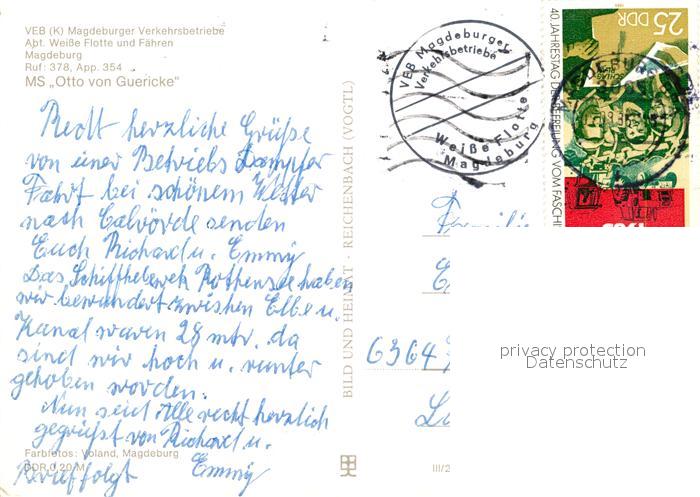 VEB (K) Magdeburger Verkehrsbetriebe
Abt. Weiße Flotte und Fähren
Magdeburg
Ruf: 378, App. 354
MS „Otto von Guericke"
Recht herzliche Grüße
von einer Betriebs Dampfer
Fahrt bei schönem Wetter
nach Calvörde senden
Euch Richard u. Emmy
Das Schiffhebewek Rothensee haben
wir bewundert zwischen Elbe u.
Kanal waren 28 mtr. da
sind wir hoch u. runter
gehoben worden.
Nun seid Alle recht herzlich
gegrüßt von Richard u.
Emmy
Brief folgt
Farbfotos: Voland, Magdeburg
DDR 0,20 M
BILD UND HEIMAT · REICHENBACH (VOGTL)
III/2
VEB Magdeburger
Verkehrsbetriebe
Weiße Flotte
Magdeburg
25 DDR
40. JAHRESTAG DER BEFREIUNG VOM FASCHI
1985
Familie
6364
privacy protection
Datenschutz